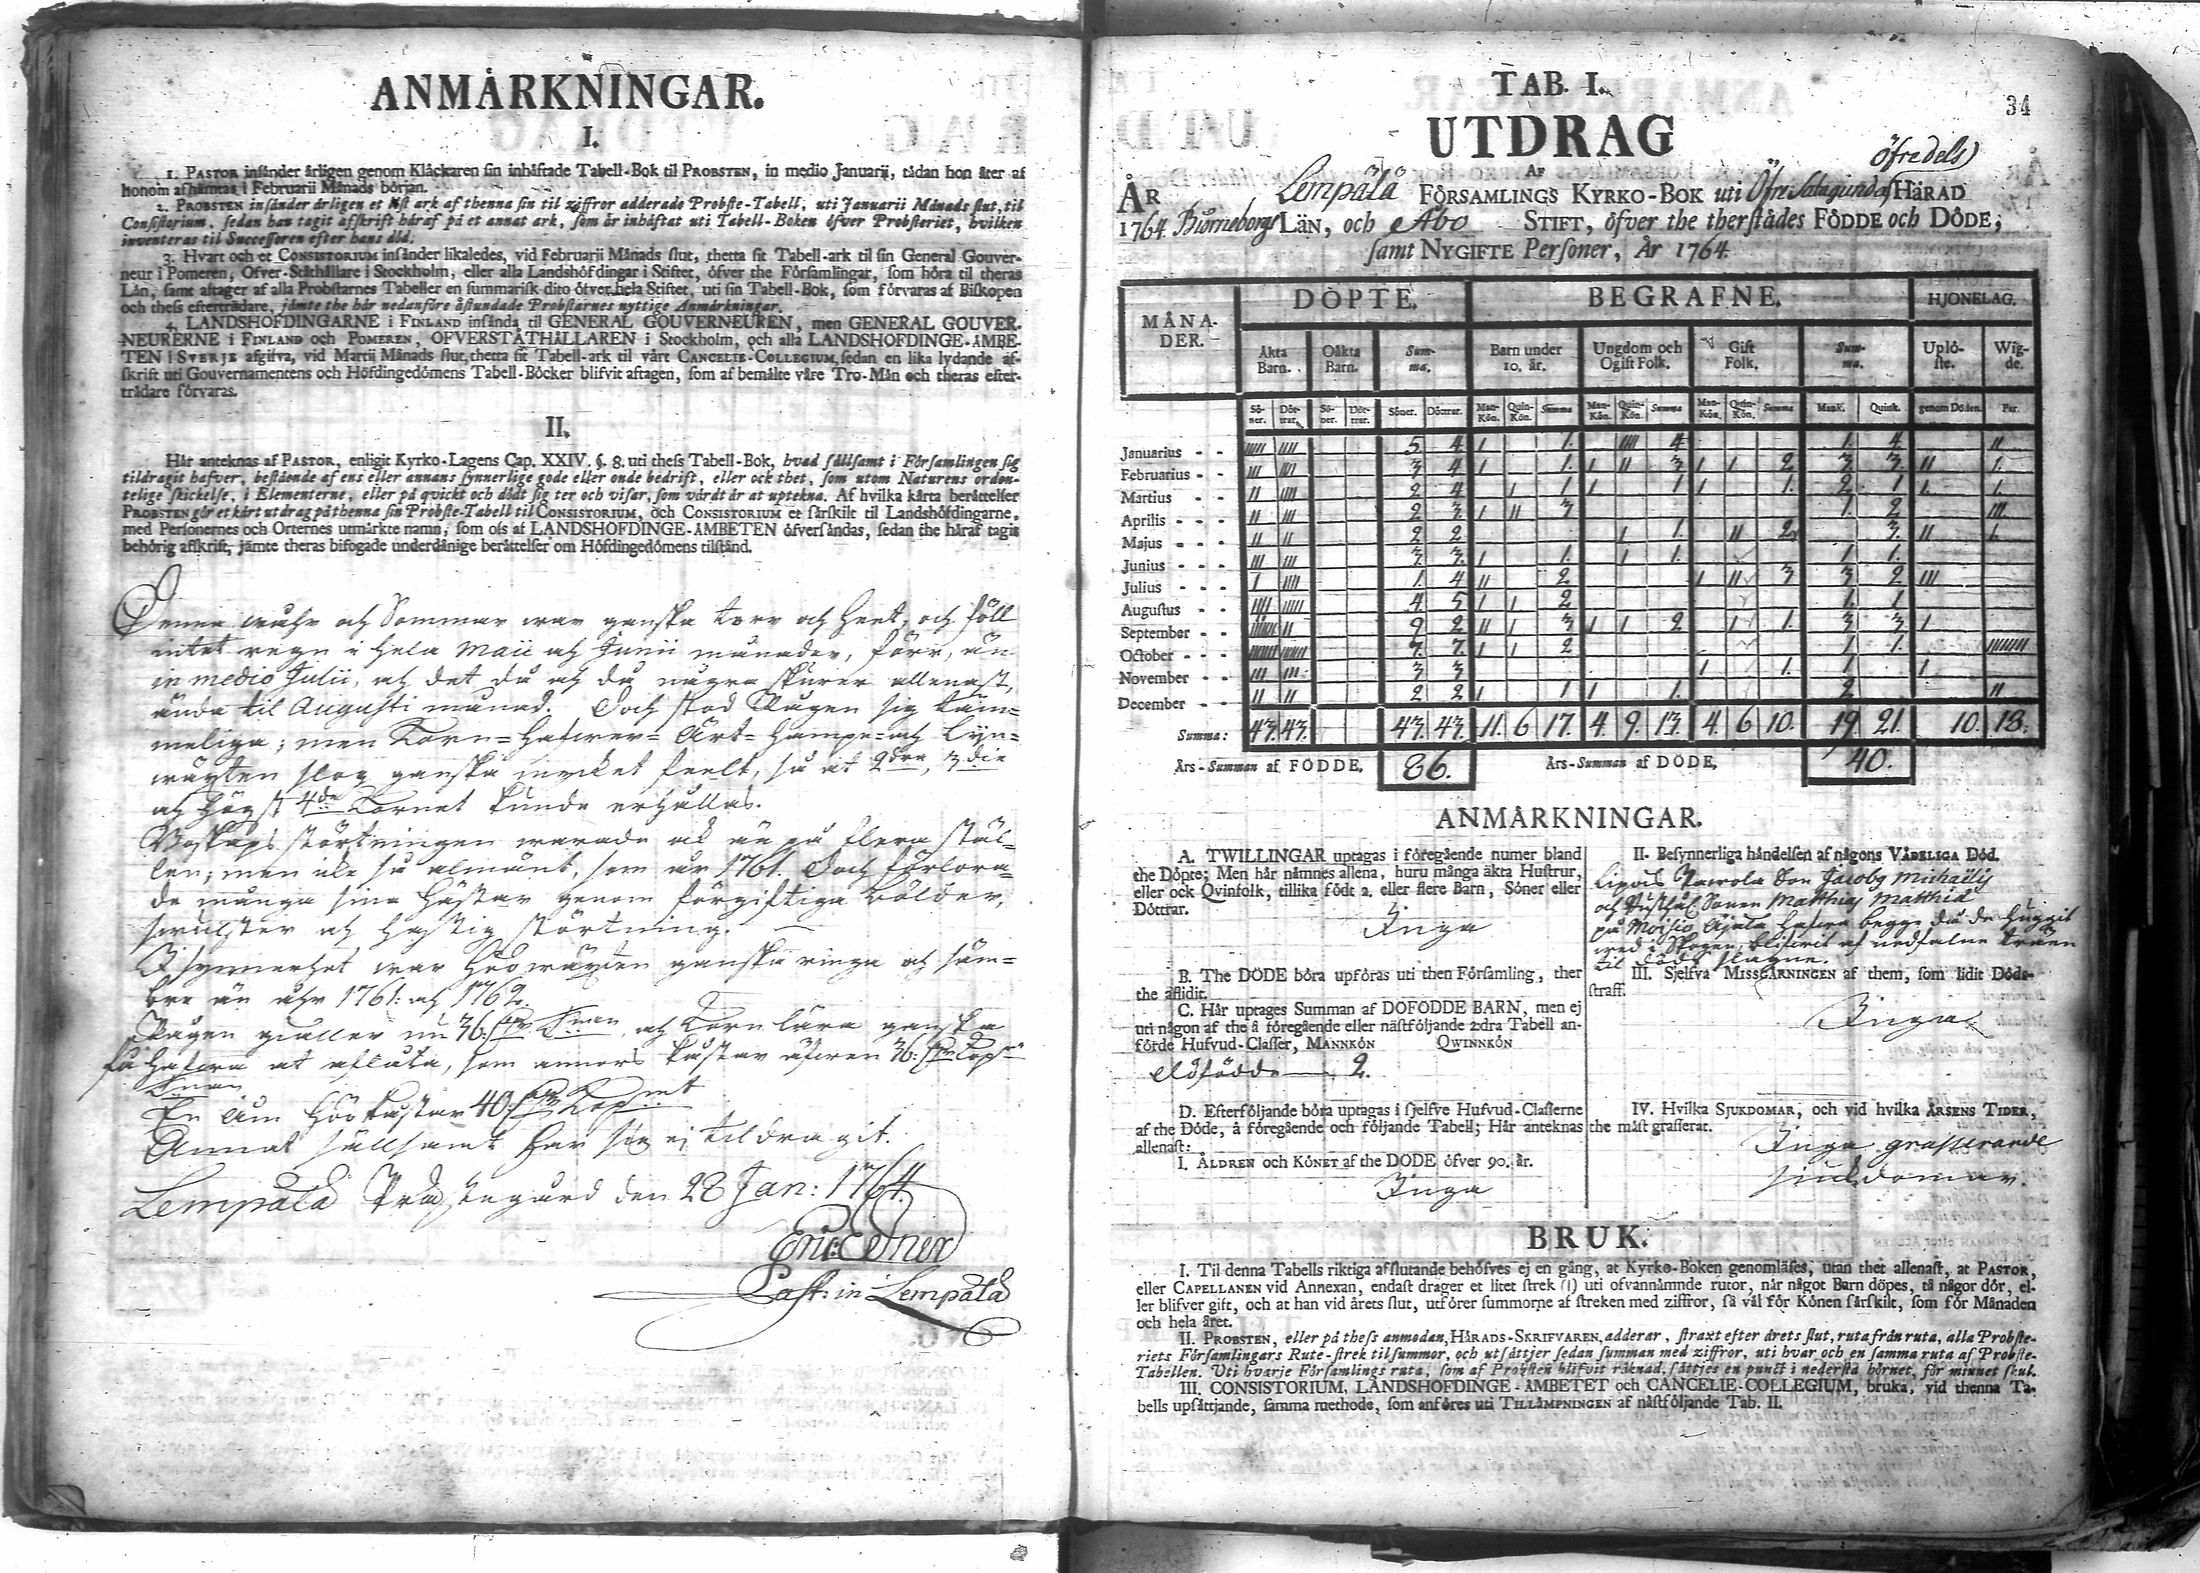 ANMÅRKNINGAR.
I.
1. PASTOR insånder årligen genom Klåckaren sin inhåftade Tabell-Bok til PROBSTEN, in medio Januarii, tådan hon åter af
honom afhåmtas i Februarii Månads början.
2. PROBSTEN insånder årligen et löst ark af thenna sin til ziffror adderade Probste-Tabell, uti Januarii Månads slut, til
Consistorium, sedan han tagit afskrift håraf på et annat ark, som år inhåftat uti Tabell-Boken öfver Probsteriet, hvilken
inventeras til Successoren efter hans död.
3. Hvart och et CONSISTORIUM insånder likaledes, vid Februarii Månads slut, thetta sit Tabell-ark til sin General Gouver-
neur i Pomeren, Ofver-Ståthållare i Stockholm, eller alla Landshöfdingar i Stiftet, öfver the Församlingar, som höra til theras
Lån, samt aftager af alla Probstarnes Tabeller en summarisk dito öfver hela Stiftet, uti sin Tabell-Bok, som förvaras af Biskopen
och thess eftertrådare, jämte the hår nedanföre åstundade Probstarnes nyttige Anmårkningar.
4. LANDSHOFDINGARNE i FINLAND insånda til GENERAL GOUVERNEUREN, men GENERAL GOUVER-
NEURERNE i FINLAND och POMEREN, OFVERSTÅTHÅLLAREN i Stockholm, och alla LANDSHOFDINGE-ÅMBE-
TEN i SVERJE afgifva, vid Martii Månads slut, thetta sit Tabell-ark til vårt CANCELIE-COLLEGIUM, sedan en lika lydande af-
skrift uti Gouvernamentens och Höfdingedömens Tabell-Böcker blifvit aftagen, som af bemålte våre Tro-Mån och theras efter-
trådare förvaras.
II.
Hår anteknas af PASTOR, enligit Kyrko-Lagens Cap. XXIV. §. 8. uti thess Tabell-Bok, hvad sållsamt i Församlingen sig
tildragit hafver, bestående af ens eller annans synnerlige gode eller onde bedrift, eller ock thet, som utom Naturens orden-
telige skickelse, i Elementerne, eller på qvickt och dödt sig ter och visar, som vårdt år at uptekna. Af hvilka korta beråttelser
PROBSTEN gör et kort utdrag på thenna sin Probste-Tabell til CONSISTORIUM, och CONSISTORIUM et sårskilt til Landshöfdingarne,
med Personernes och Orternes utmårkte namn, som oss af LANDSHOFDINGE-ÅMBETEN öfversåndas, sedan the håraf tagit
behörig afskrift, jämte theras bifogade underdånige beråttelser om Höfdingedömens tilstånd.
Denna wåhr och Sommar war ganska torr och heet, och föll
intet regn i hela Maii och Junii månader, förr, än
in medio Julii, och det då och då några skurer allenast,
ända til Augusti månad. Doch stod Rågen sig täm-
meliga; men Korn- Hafwer- Ärt- Hampe- och Lyn-
wäxten slog ganska mycket feelt, så at 2dra, 3die
och högst 4de Kornet kunde erhållas.
Boskaps störtningen warade ock än på flera stäl-
len; men icke så almänt, som år 1761. Doch förlora-
de många sina Hästar genom förgiftiga bölder,
swulster och hastig störtning.
Isynnerhet war Höowäxten ganska ringa och säm-
bre än åhr 1761: och 1762.
Rågen gäller nu 36: och Korn lära ganska
få hafwa at aflåta, som annors kåstar äfwen 36:
En Åm Höö kåstar 40:
Annat sällsamt har sig ej tildragit.
Lempälä Prästegård den 28 Jan: 1764.
Eric: Edner
Past: in Lempälä
34
TAB. I.
UTDRAG
AF
öfredels
ÅR Lempälä FÖRSAMLINGS KYRKO-BOK uti Öfre Satagunda HÅRAD
1764. Biörneborgs LÄN, och Åbo STIFT, öfver the therstådes FÖDDE och DÖDE,
samt NYGIFTE Personer, År 1764.
MÅNA-DER. DÖPTE. BEGRAFNE. HJONELAG.
Åkta Barn. Oåkta Barn. Summa. Barn under 10. år. Ungdom och Ogift Folk. Gift Folk. Summa. Uplöste. Wigde.
Söner. Döttrar. Söner. Döttrar. Söner. Döttrar. Mankön. Quinkön. Summa Mankön. Quinkön. Summa Mankön. Quinkön. Summa Mank. Quink. genom Döden. Par.
Januarius - - 5 4 1. 4 1. 4
Februarius - 3 4 1. 3 2 3 3. 1.
Martius - - 2 4 1 1 1. 2 1 1. 1.
Aprilis - - 2 3. 3 1. 2
Majus - - - 2 2 1. 2 3. 1.
Junius - - - 3. 3. 1. 1. 1 1.
Julius - - - 1 4 2 3 3 2
Augustus - - 4 5 2 1. 1
September - - 9 2 3 2 1. 3 3
October - - - 7. 7. 2 1 1.
November - - 3 3 1. 1
December - - 2 2 1 1. 2
Summa: 43. 43. 43. 43. 11. 6 17. 4. 9. 13. 4. 6 10. 19. 21. 10. 18.
Års-Summan af FÖDDE, 86. Års-Summan af DÖDE, 40.
ANMÅRKNINGAR.
A. TWILLINGAR uptagas i föregående numer bland
the Döpte; Men hår nåmnes allena, huru många åkta Hustrur,
eller ock Qvinfolk, tillika födt 2. eller flere Barn, Söner eller
Döttrar.
Inga
B. The DÖDE böra upföras uti then Församling, ther
the aflidit.
C. Hår uptages Summan af DÖFÖDDE BARN, men ej
uti någon af the å föregående eller nåstföljande 2:dra Tabell an-
förde Hufvud-Classer, MANNKÖN QWINNKÖN
Döfödde 2.
D. Efterföljande böra uptagas i sjelfve Hufvud-Classerne
af the Döde, å föregående och följande Tabell; Hår anteknas
allenast:
I. ÅLDREN och KÖNET af the DÖDE öfver 90. år.
Inga
II. Besynnerliga håndelsen af någons VÅDELIGA DÖD.
Jacobg Michaëlis
och Matthias Matthiæ
på Moisio hafwa begge då de huggit
wed i Skogen, blifwit af nedfalne trään
til döds slagne.
III. Sjelfva MISSGÅRNINGEN af them, som lidit Döds-
straff.
Inga
IV. Hvilka SJUKDOMAR, och vid hvilka ÅRSENS TIDER,
the måst grasserat.
Inga grasserande
siukdomar.
BRUK.
I. Til denna Tabells riktiga afslutande behöfves ej en gång, at Kyrko-Boken genomlåses, utan thet allenast, at PASTOR,
eller CAPELLANEN vid Annexan, endast drager et litet strek (|) uti ofvannåmnde rutor, når något Barn döpes, tå någor dör, el-
ler blifver gift, och at han vid årets slut, utförer summorne af streken med ziffror, så vål för Könen sårskilt, som för Månaden
och hela året.
II. PROBSTEN, eller på thess anmodan, HÅRADS-SKRIFVAREN, adderar, straxt efter årets slut, ruta från ruta, alla Probste-
riets Församlingars Rute-strek til summor, och utsåttjer sedan summan med ziffror, uti hvar och en samma ruta af Probste-
Tabellen. Uti hvarje Församlings ruta, som af Probsten blifvit råknad, såttjes en punct i nedersta hörnet, för minnet skul.
III. CONSISTORIUM, LANDSHOFDINGE-ÅMBETET och CANCELIE-COLLEGIUM, bruka, vid thenna Ta-
bells upsåttjande, samma methode, som anföres uti TILLÅMPNINGEN af nåstföljande Tab. II.